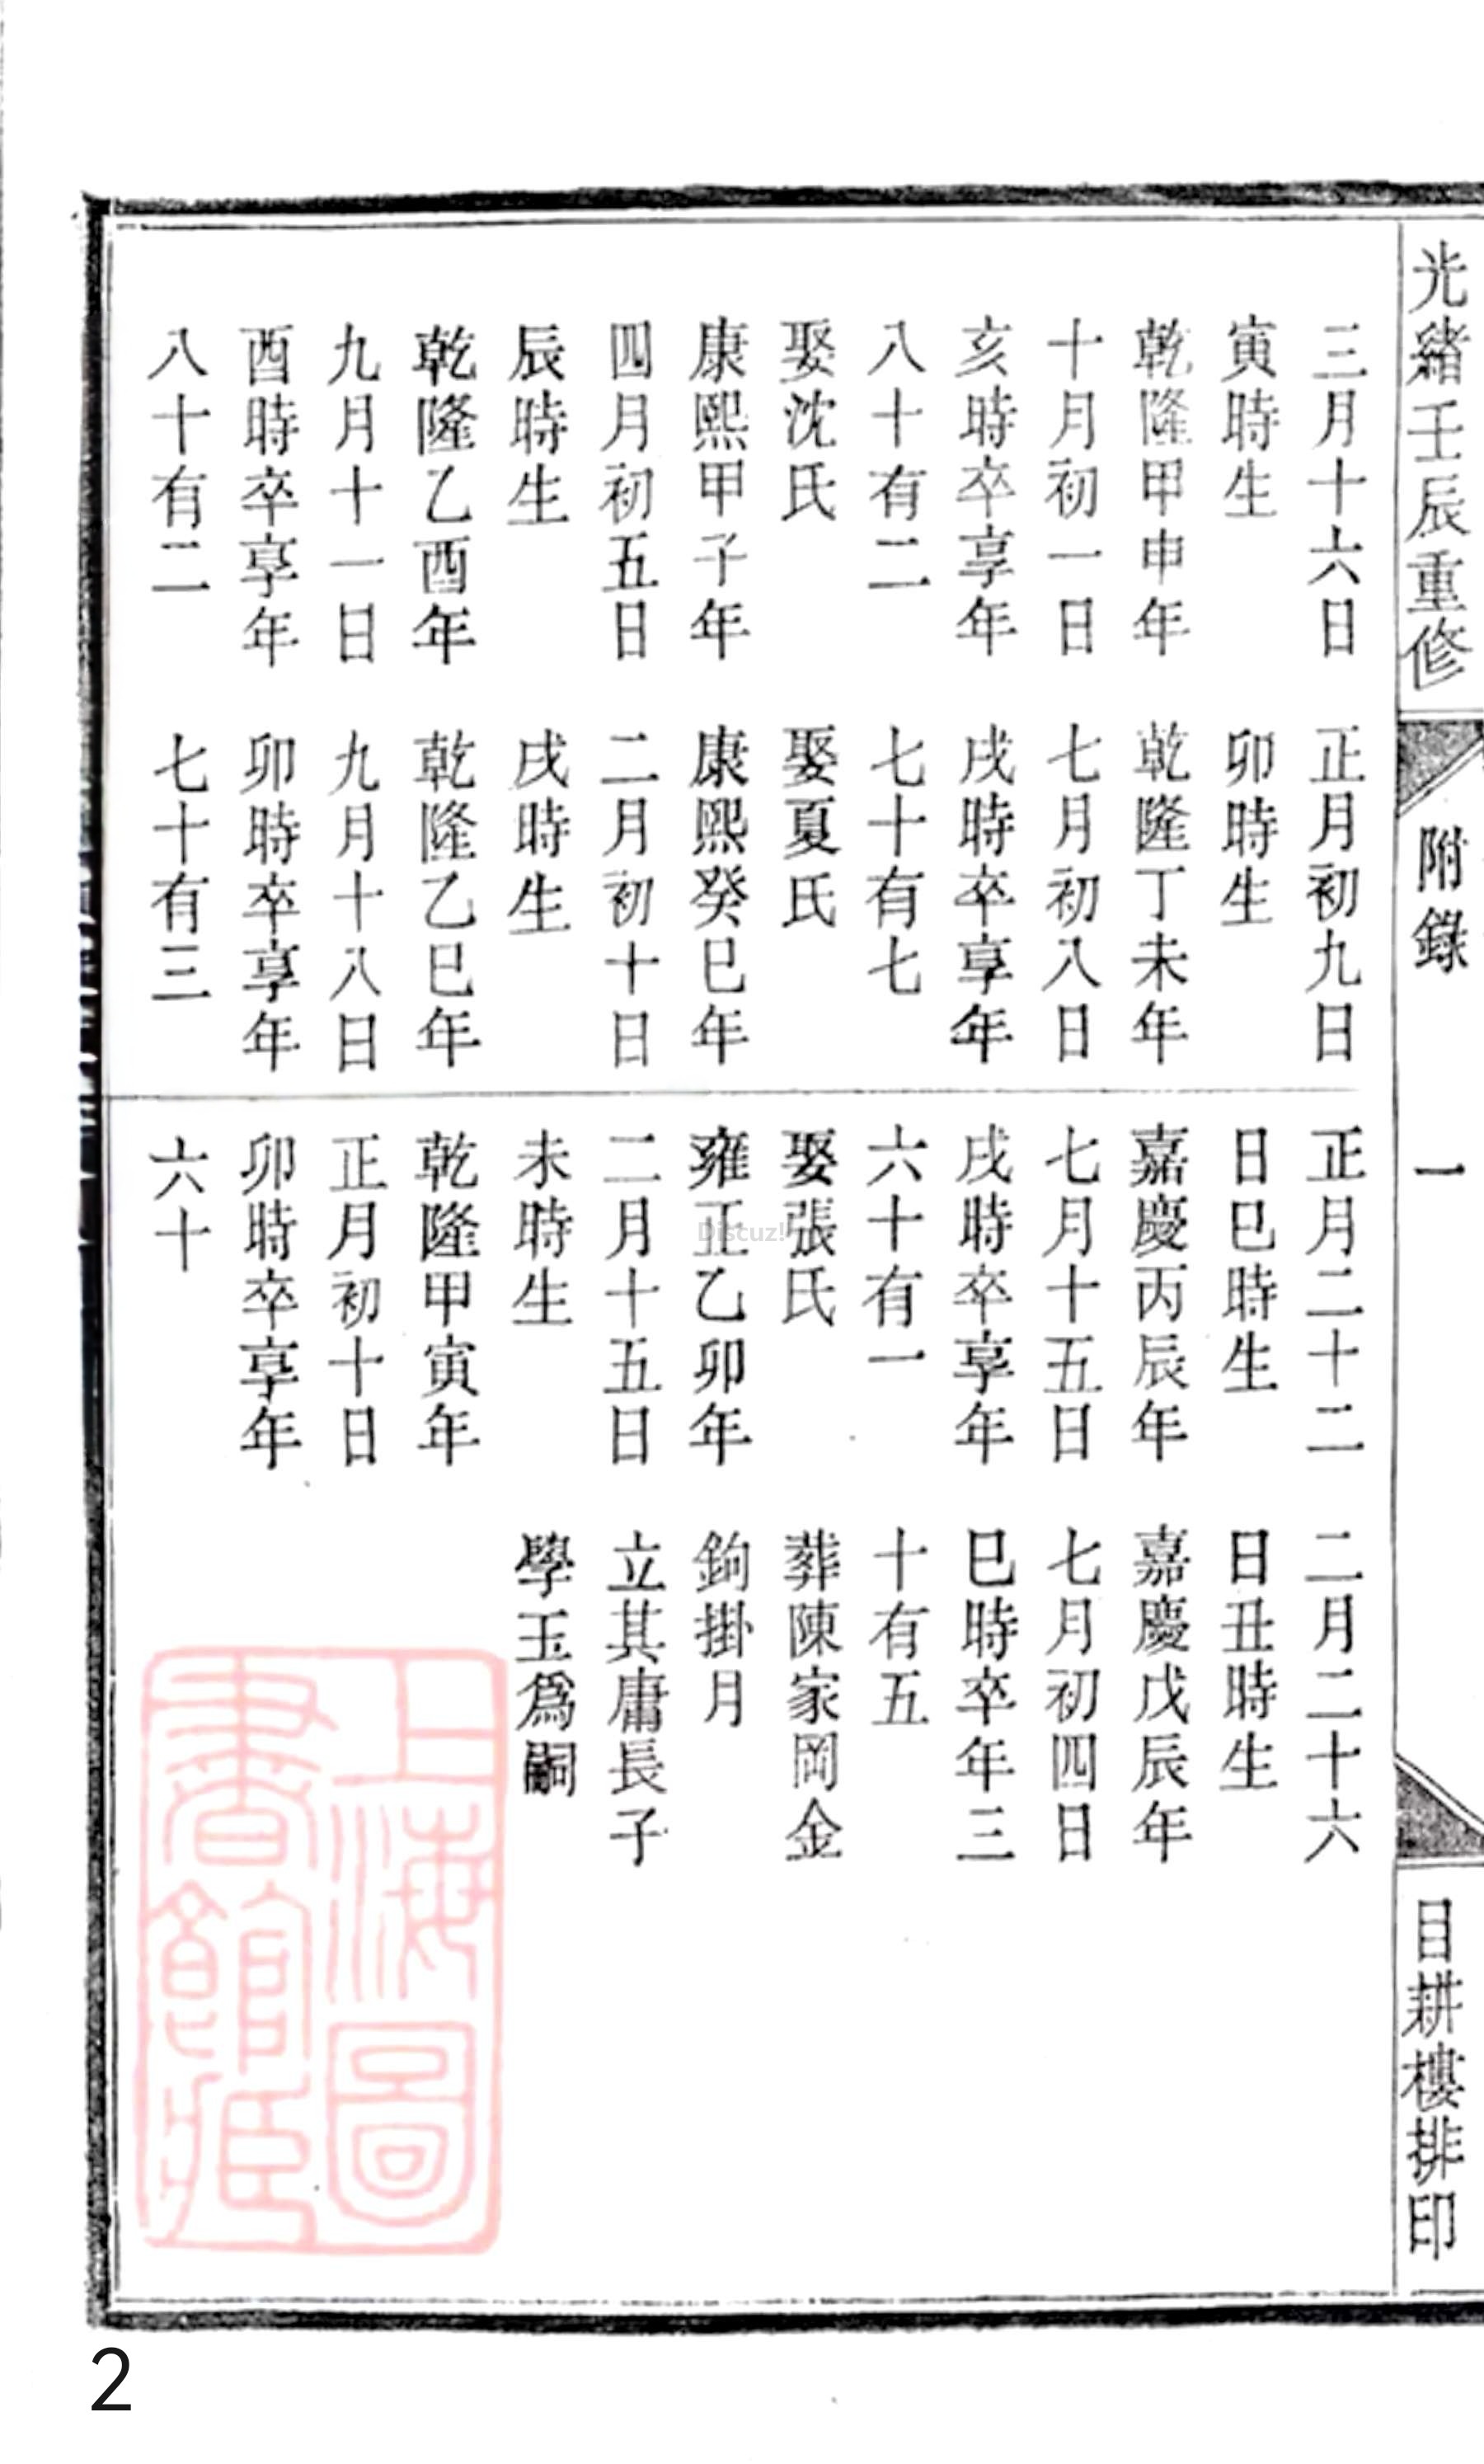 光緒壬辰重修
附錄
一
目耕樓排印
三月十六日
寅時生
乾隆甲申年
十月初一日
亥時卒享年
八十有二
娶沈氏
康熙甲子年
四月初五日
辰時生
乾隆乙酉年
九月十一日
酉時卒享年
八十有二
正月初九日
卯時生
乾隆丁未年
七月初八日
戌時卒享年
七十有七
娶夏氏
康熙癸巳年
二月初十日
戌時生
乾隆乙巳年
九月十八日
卯時卒享年
七十有三
正月二十二
日巳時生
嘉慶丙辰年
七月十五日
戌時卒享年
六十有一
娶張氏
雍正乙卯年
二月十五日
未時生
乾隆甲寅年
正月初十日
卯時卒享年
六十
二月二十六
日丑時生
嘉慶戊辰年
七月初四日
巳時卒年三
十有五
葬陳家岡金
鉤掛月
立其庸長子
學玉為嗣
上海圖
書館藏
Discuz!
2